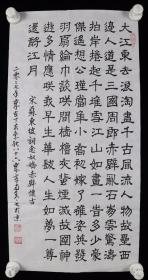 大江東去浪淘盡千古風流人物故壘西
邊人道是三國周郎赤壁亂石崩雲驚濤
拍岸捲起千堆雪江山如畫一時多少豪
傑遙想公瑾當年小喬初嫁了雄姿英發
羽扇綸巾談笑間檣櫓灰飛煙滅故國神
遊多情應笑我早生華髮人生如夢一尊
還酹江月
宋蘇東坡詞念奴嬌赤壁懷古